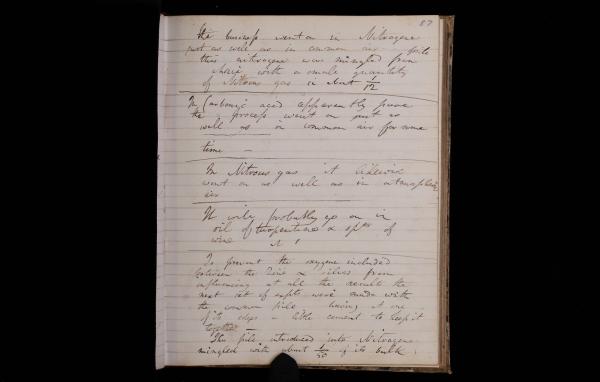 87
The business went on in Nitrogene
just as well as in common air
this nitrogene was mingled from
with a small quantity
of Nitrous gas ie abut 1/12
In Carbonic acid apparently pure
the process went on just as
well as in common air for some
time —
In Nitrous gas it likewise
went on as well as in atmospheric
air
It will probably go on in
oil of turpentine & spts of
wine
To prevent the oxygene included
between the Zinc & silver from
influencing at all the result the
next set of expts were made with
the common pile having at one
of its edges a little cement to keep it
together —
This pile introduced into Nitrogene
mingled with about 1/30 of its bulk